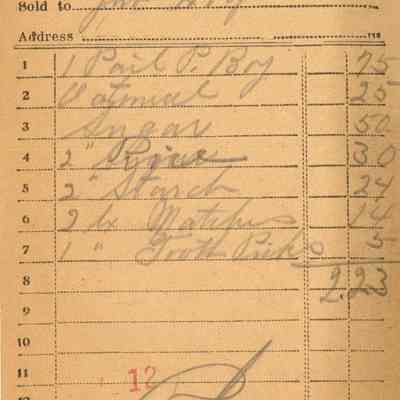 Sold to
Address
1 1 Pail P. Boy 75
2 Oatmeal 25
3 Sugar 50
4 2 " 30
5 2 " Starch 24
6 2 bx Matches 14
7 1 " Tooth Picks 5
8 2.23
9
10
11
12